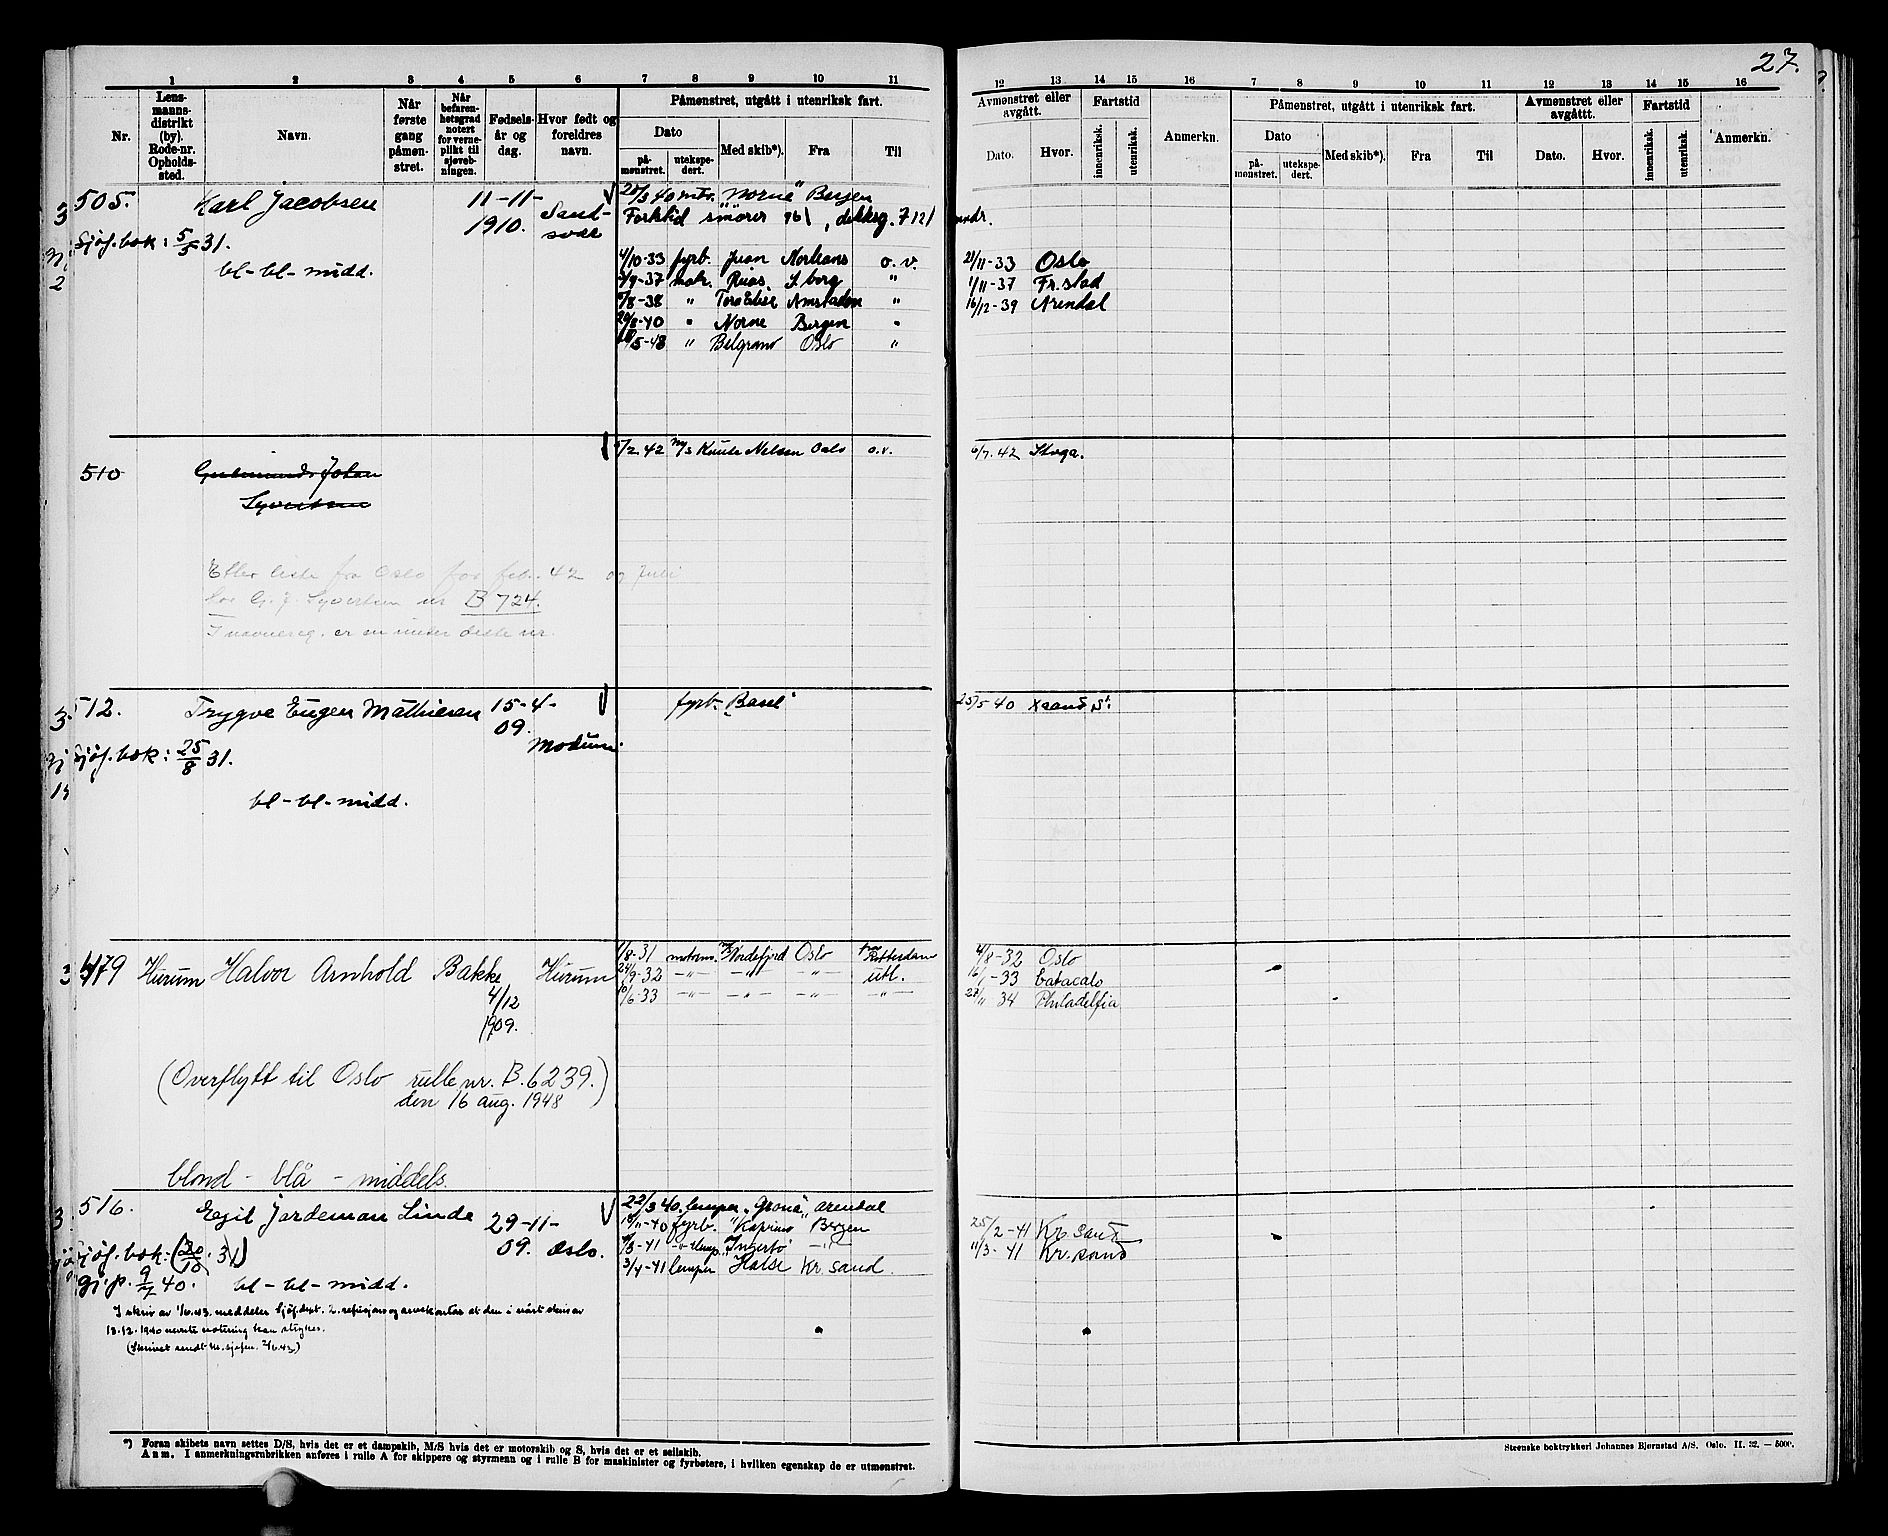 27.
1 2 3 4 5 6 7 8 9 10 11
12 13 14 15 16 7 8 9 10 11 12 13 14 15 16
Nr.
Lens-
manns-
distrikt
(by).
Rode-nr.
Opholds-
sted.
Navn.
Når
første
gang
påmøn-
stret.
Når
befaren-
hetsgrad
notert
for verne-
plikt til
sjøveb-
ningen.
Fødsels-
år og
dag.
Hvor født og
foreldres
navn.
Påmønstret, utgått i utenriksk fart.
Dato
på-
mønstret.
utekspe-
dert.
Med skib*).
Fra
Til
Avmønstret eller
avgått.
Dato.
Hvor.
Fartstid
innenriksk.
utenriksk.
Anmerkn.
Påmønstret, utgått i utenriksk fart.
Dato
på-
mønstret.
utekspe-
dert.
Med skib*).
Fra
Til
Avmønstret eller
avgåttt.
Dato.
Hvor.
Fartstid
innenriksk.
utenriksk.
Anmerkn.
505. Karl Jacobsen 11-11-
1910. Sand-
svær
Sjøf.bok: 5/5 31.
bl-bl-midd.
25/3 40 mtr. "Norne" Bergen
Fartstid smører 76, dekksg. 7 12 mndr.
4/10-33 fyrb. Juan Norleans o.v. 21/11-33 Oslo
/9-37 matr. S.borg " 1/11-37 Fr.stad
/8-38 " Tora Elise Amsterdam " 16/12-39 Arendal
/8-40 " Norne Bergen "
/5-48 " Belgrano Oslo "
510 Gudmund Johan
Syvertsen
/2.42 M/S Knute Nelson Oslo o.v. 6/7.42
Efter liste fra Oslo for feb. 42 og Juli
har G. J. Syvertsen nr B 724.
I navnereg. er en under dette nr.
512. Trygve Eugen Mathiesen 15-4-
09.
Modum.
Sjøf.bok: 25/8 31.
bl-bl-midd.
fyrb. "Basel" 25/5 40 Kr.sand S.
479 Hurum Halvor Arnhold Bakke Hurum
4/12
1909.
1/8-31 motorm. Nordefjord Oslo Rotterdam 4/8-32 Oslo
24/9-32 —"— —"— —"— utl. 16/1-33
10/6-33 —"— —"— —"— —"— 27/11 34 Philadelfia
(Overflytt til Oslo rulle nr. B.6239.)
den 16 aug. 1948
blond - blå - middels.
516. Egil Jordeman Linde 29-11-
09. Oslo.
Sjøf.bok: (20/10. 31)
gj.p. 9/7 40. bl-bl-midd.
22/3 40. lemper "Grona" Arendal
/11-40 fyrb. "Kaprino" Bergen 25/2-41 Kr.sand
/3-41 lemp. "Ingerto" —"— 11/3-41 Kr.sand
3/4-41 lemper Halse Kr sand.
I skriv av 1/6.43. meddeler Sjøf.dept. 2. at den i vårt skriv av
13.12.1940 nevnte notering kan strykes.
*) Foran skibets navn settes D/S, hvis det er et dampskib, M/S hvis det er motorskib og S, hvis det er et seilskib.
Anm. I anmerkningsrubrikken anføres i rulle A for skippere og styrmenn og i rulle B for maskinister og fyrbøtere, i hvilken egenskap de er utmønstret.
Steenske boktrykkeri Johannes Bjørnstad A/S. Oslo. II. 32. — 5000.